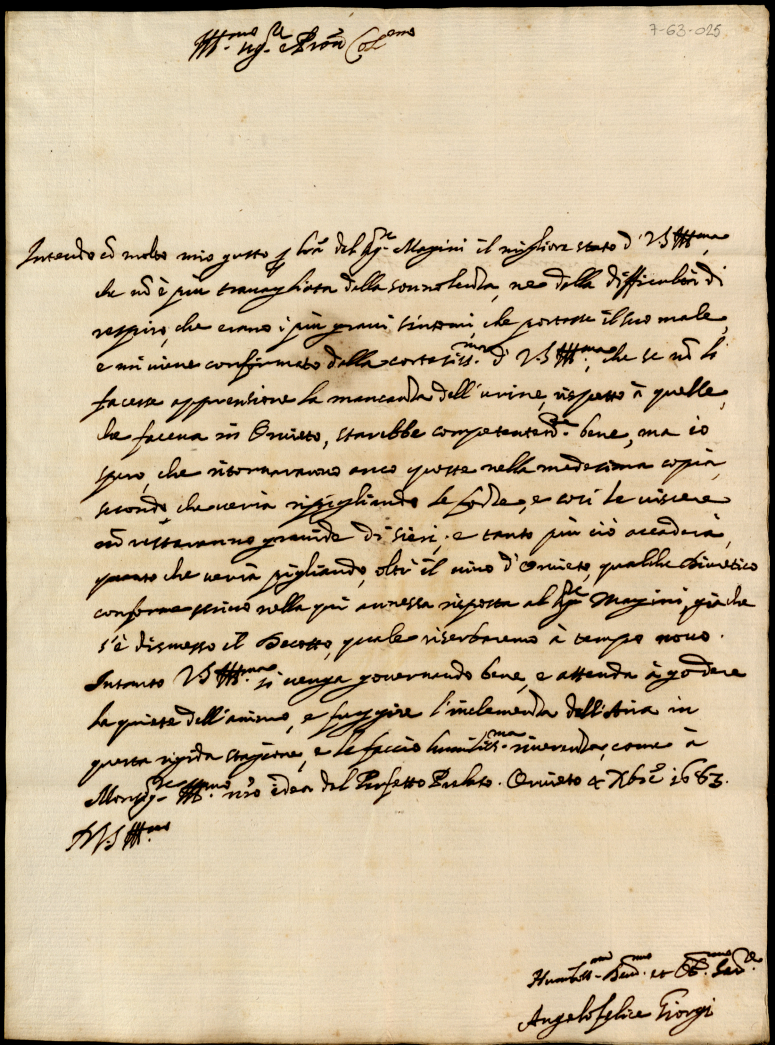 7-63-025
Ill.mo Sig.re e Pron Col.mo
Intendo cō molto mio gusto p l'ra del Sig.re Magini il migliore stato d' VS Ill.ma,
che nō è più travagliata dalla sonnolenza, ne dalla difficoltà di
respiro, che erano i più gravi sintomi, che portasse il suo male,
e mi viene confirmato dalla cortesiss.ma d' VS Ill.ma; che se nō li
facesse apprensione la mancanza dell'urine, rispetto à quelle,
che faceva in Orvieto, starebbe competentem.te bene, ma io
spero, che ritornaranno anco queste nella medesima copia,
secondo che verrà ripigliando le forze, e così le viscere
nō restaranno gravide di sieri; e tanto più ciò accaderà,
quanto che verrà pigliando, oltr' il vino d'Orvieto, qualche diuretico
conforme scrivo nella qui annessa risposta al Sig.re Magini, già che
s'è dismesso il Decotto, quale riserbaremo à tempo novo.
Intanto VS Ill.ma si venga governando bene, e attenda à godere
la quiete dell'animo, e fuggire l'inclemenza dell'Aria in
questa rigida stagione, e le faccio humiliss.ma riverenza, come à
Monsig.re Ill.mo nro idea del Perfetto Prelato. Orvieto 4 Xbre 1683.
D VS Ill.ma
Humiliss.mo Dev.mo et Obl.mo Ser.re
Angelofelice Giorgi